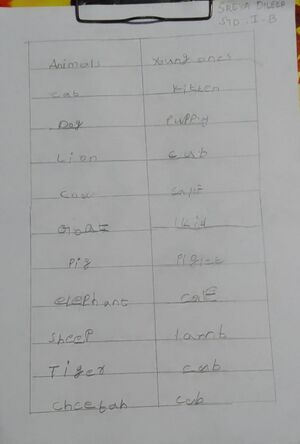 SREYA DILEEP
STD. I-B
Animals Young ones
cat kitten
Dog puppy
Lion cub
Cow calf
Goat kid
Pig Piglet
elephant calf
sheep lamb
Tiger cub
cheetah cub